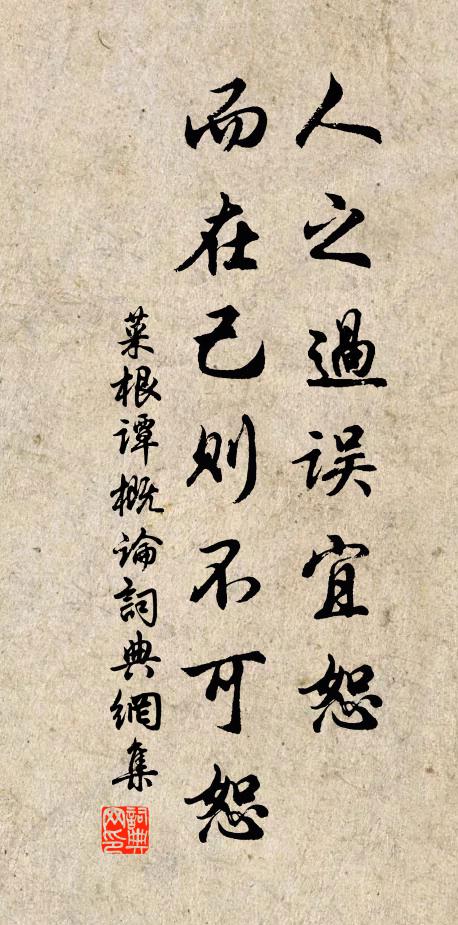 人之過误宜恕
而在己则不可恕
菜根谭概论詞典網集
詞典网印